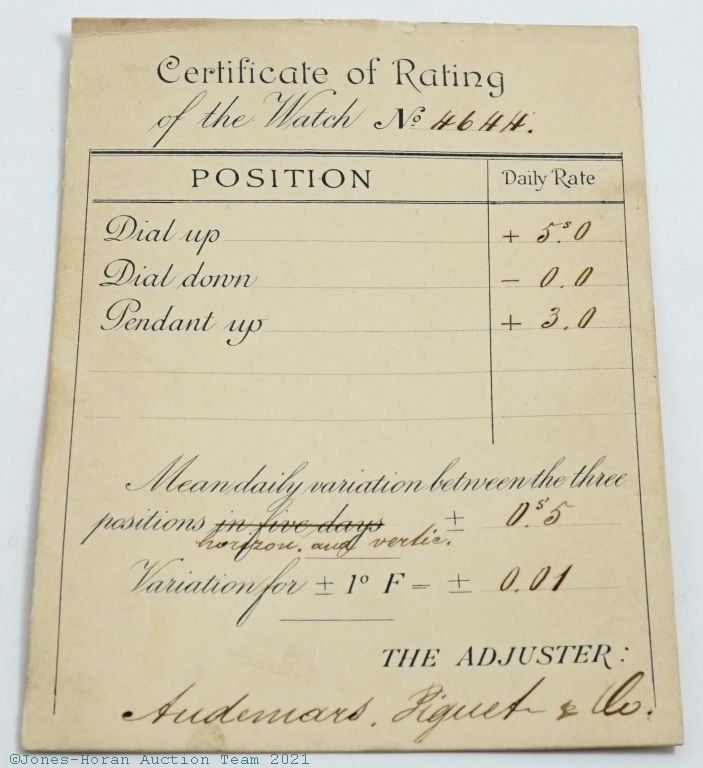 Certificate of Rating
of the Watch No. 4644.
POSITION Daily Rate
Dial up + 5s.0
Dial down - 0.0
Pendant up + 3.0
Mean daily variation between the three
positions in five days ± 0s.5
horizon. and vertic.
Variation for ± 1° F = ± 0.01
THE ADJUSTER:
Audemars, Piguet & Co.
©Jones-Horan Auction Team 2021